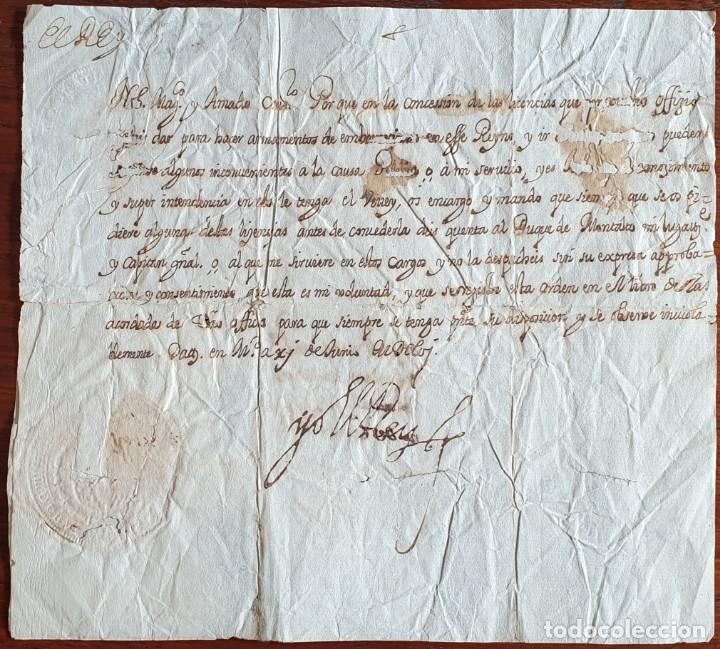 El Rey
Mag.co y Amado Cons.o Porque en la Concession de las licencias que por offizio
dar para hacer armamentos de en esse Reyno y ir pueden
se algunos inconvenientes a la causa o, a mi servicio, y es conozimiento
y super intendencia en ellas le tenga el Virrey, os encargo y mando que siempre que se os
diere alguna destas licencias antes de concederla deis quenta al Duque de Montalto mi lugart.
y Capitan gñal. o, al que me sirviere en estos Cargos y no la despacheis sin su expresa approba-
cion y consentimiento que esta es mi voluntad, y que se registre esta orden en el libro de las
acordadas de offizio para que siempre se tenga su disposicion y se observe inviola-
blemente. Datt. en M.d a xj de Junio
yo el Rey
todocoleccion